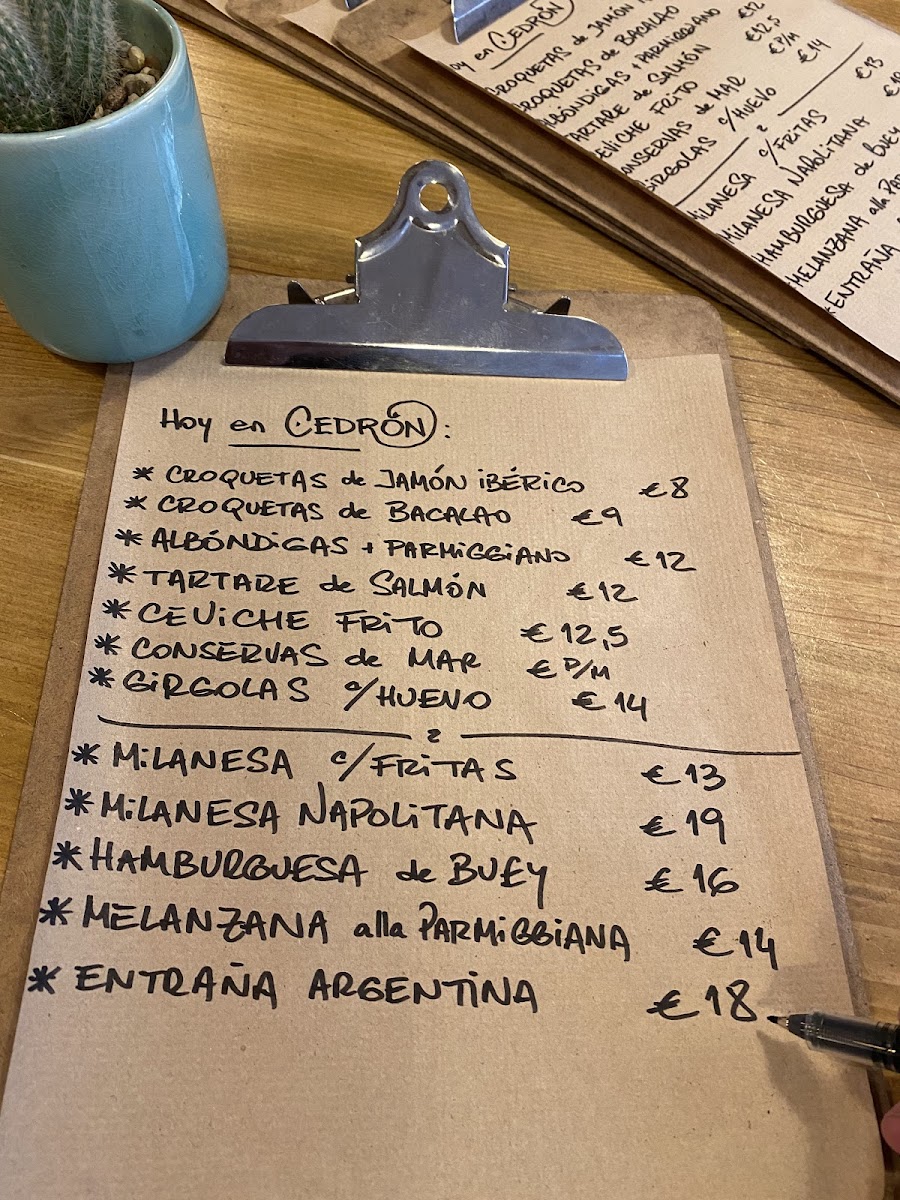 Hoy en CEDRÓN:
* CROQUETAS de JAMÓN iBÉRiCO €8
* CROQUETAS de BACALAO €9
* ALBÓNDiGAS + PARMiGGiANO €12
* TARTARE de SALMÓN €12
* CEViCHE FRiTO €12,5
* CONSERVAS de MAR € P/M
* GiRGOLAS c/HUEVO €14
2
* MiLANESA c/FRiTAS €13
* MiLANESA NAPOLiTANA €19
* HAMBURGUESA de BUEY €16
* MELANZANA alla PARMiGGiANA €14
* ENTRAÑA ARGENTiNA €18
oy en CEDRÓN
CROQUETAS de JAMÓN
CROQUETAS de BACALAO
ALBÓNDiGAS + PARMiGGiANO €12
TARTARE de SALMÓN €12,5
CEViCHE FRiTO € P/M
CONSERVAS de MAR €14
GiRGOLAS c/HUEVO
2
MiLANESA c/FRiTAS €13
MiLANESA NAPOLiTANA
HAMBURGUESA de BUEY
MELANZANA alla PAR
* ENTRAÑA